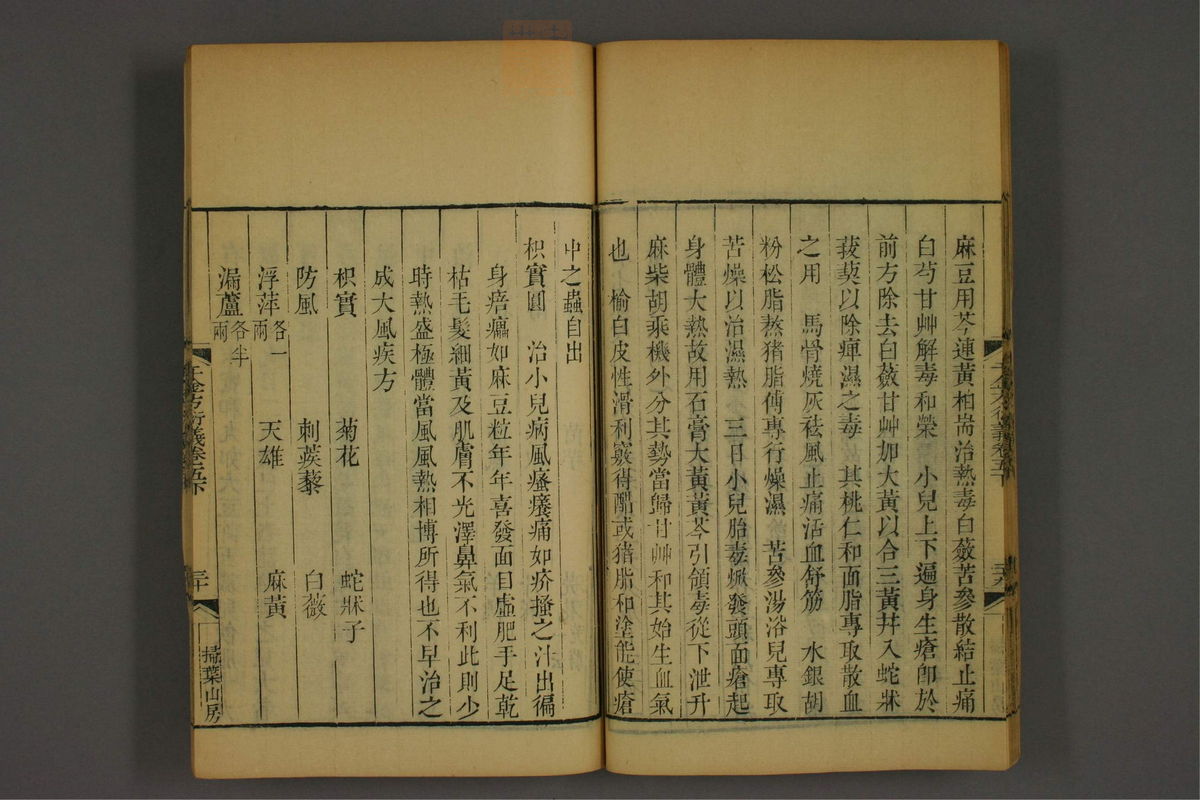 麻豆用芩連黃柏耑治熱毒白蘞苦參散結止痛
白芍甘艸解毒和榮　小兒上下遍身生瘡卽於
前方除去白蘞甘艸加大黃以合三黃幷入蛇牀
菝葜以除痺濕之毒　其桃仁和面脂專取散血
之用　馬骨燒灰祛風止痛活血舒筋　水銀胡
粉松脂蒸猪脂傅專行燥濕　苦參湯浴兒專取
苦燥以治濕熱　三日小兒胎毒焮發頭面瘡起
身體大熱故用石膏大黃黃芩引領毒從下泄升
麻柴胡乘機外分其勢當歸甘艸和其始生血氣
也　榆白皮性滑利竅得醋或猪脂和塗能使瘡
中之蟲自出
枳實圓　治小兒病風瘙癢痛如疥搔之汁出徧
身痦癗如麻豆粒年年喜發面目虛肥手足乾
枯毛髮細黃及肌膚不光澤鼻氣不利此則少
時熱盛極體當風風熱相博所得也不早治之
成大風疾方
枳實　菊花　蛇牀子
防風　刺蒺藜　白薇
浮萍各一兩　天雄　麻黃
漏蘆各半兩
千金方衍義卷五下
三十
掃葉山房